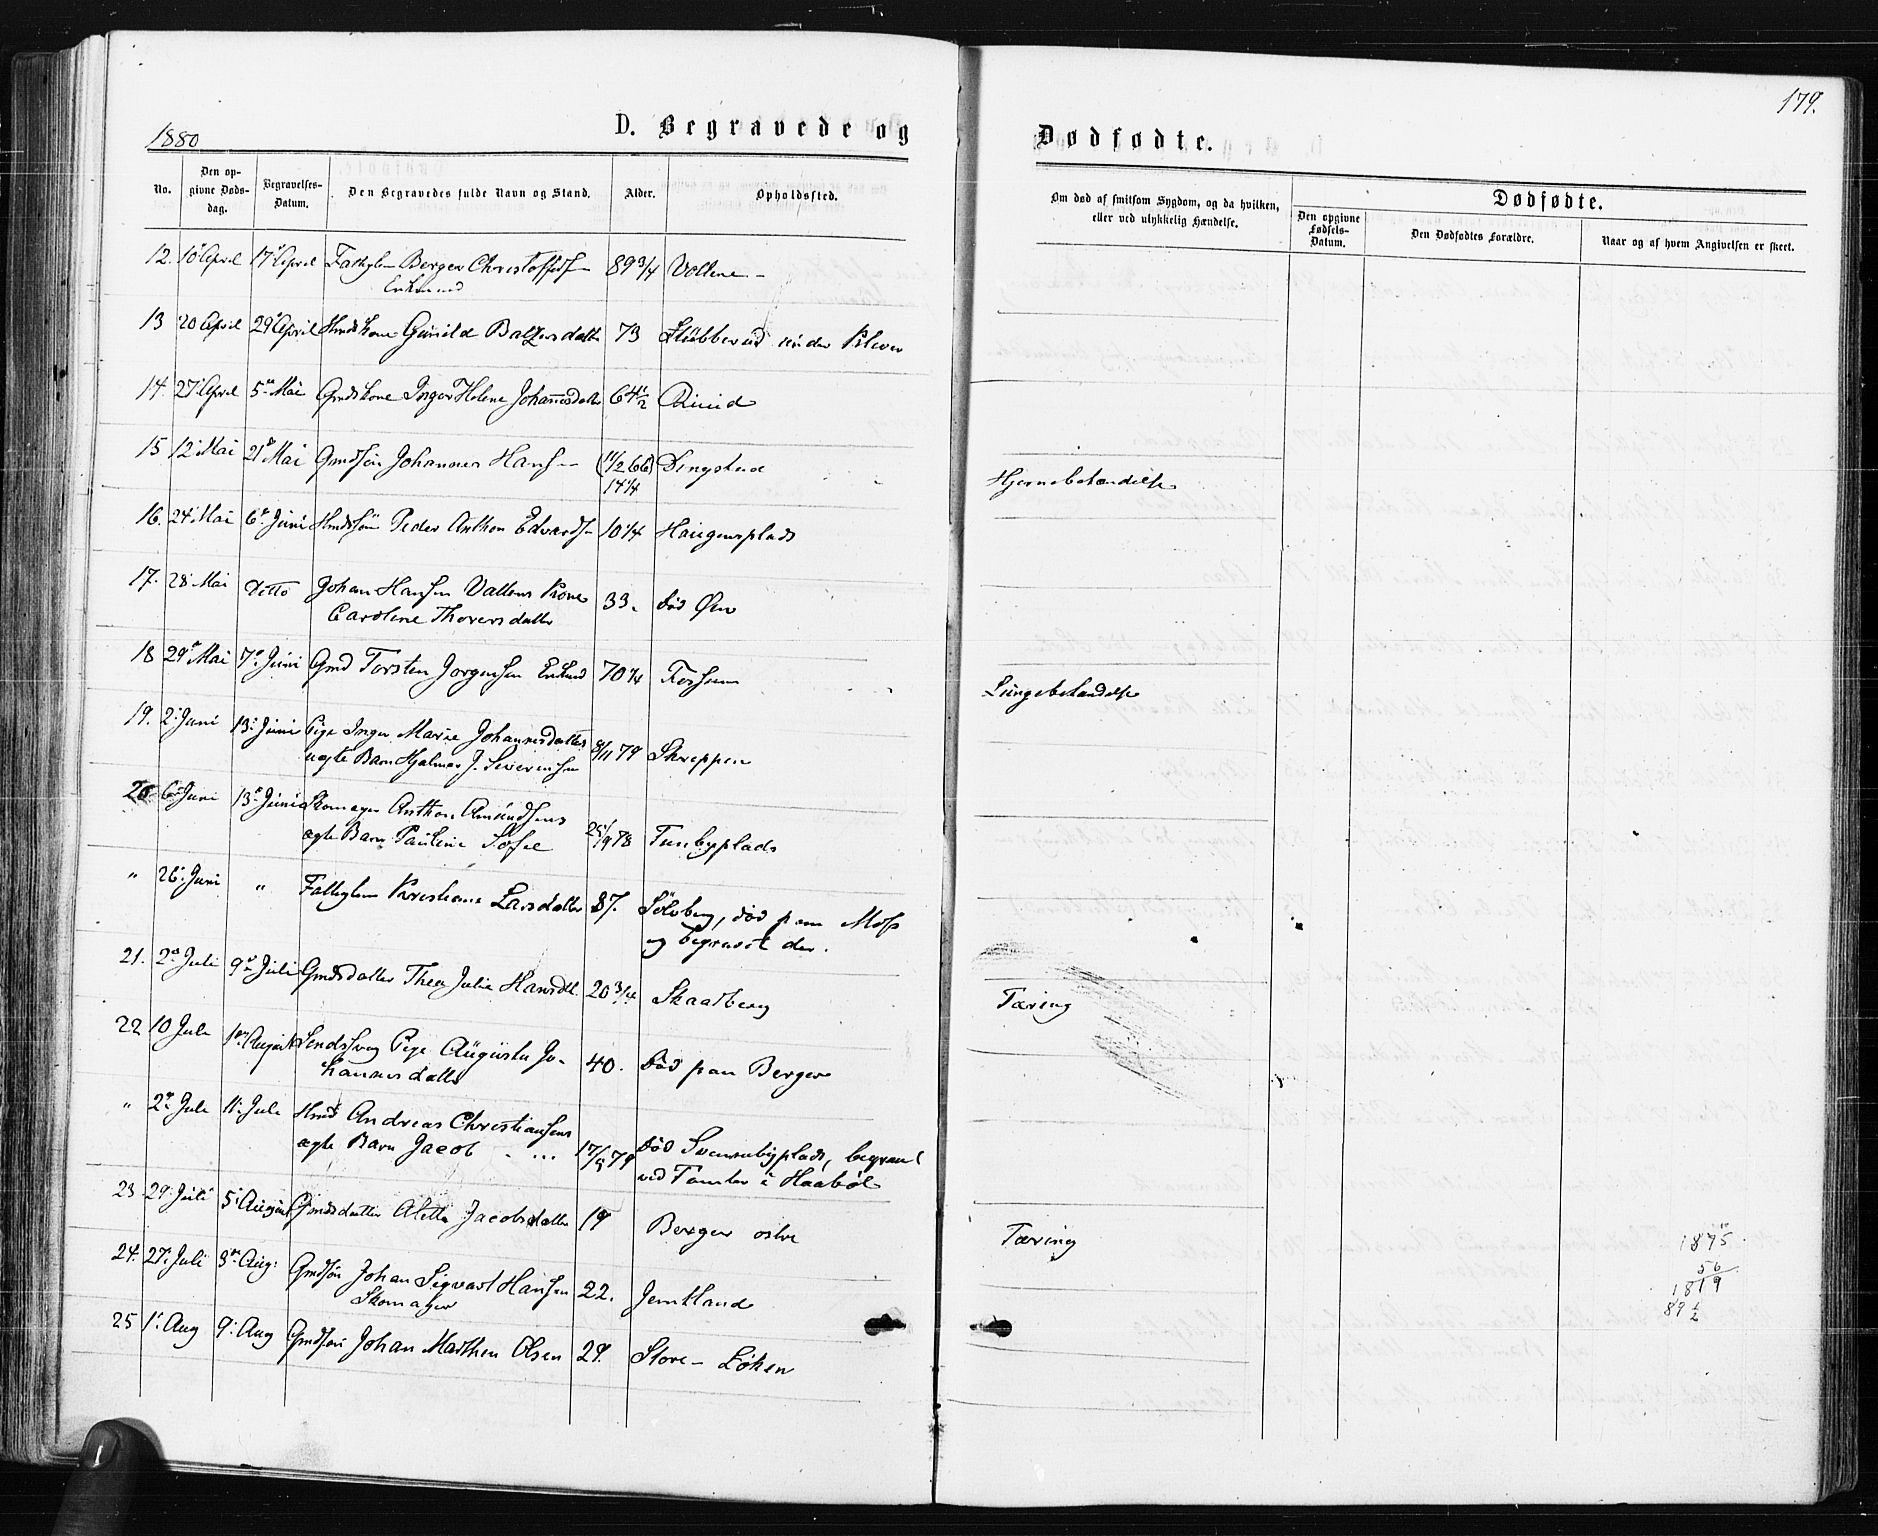 179.
1880
D. Begravede og
Dødfødte.
No.
Den opgivne Dødsdag.
Begravelses-Datum.
Den Begravedes fulde Navn og Stand.
Alder.
Opholdssted.
Om død af smitsom Sygdom, og da hvilken,
eller ved ulykkelig Hændelse.
Dødfødte.
Den opgivne Fødsels-Datum.
Den Dødfødtes Forældre.
Naar og af hvem Angivelsen er skeet.
12. 10 April 17 April Berger 89 3/4 Vollene
Enkemand
13 20 April 29 April Gunild Baltzersdatter 73 under
14. 27 April 5 Mai Gmdskone Inger Helene Johannesdatter 64 1/2
15 12 Mai 21 Mai Gmdsøn Johannes Hans (11/2 66) Dingstad
14 1/4
Hjernebetændelse
16. 24 Mai 6 Juni Peder Anthon Edvards 10 1/4 Haugensplads
17. 28 Mai Ditto Johan Hansen Kone 33. død
Caroline Thorersdatter
18 29 Mai 7 Juni Gmd Torsten Jørgensen Enkemd 70 1/4 Fossum
Lungebetændelse
19. 2 Juni 13 Juni Pige Inger Marie Johannesdatters 8/11 79 Skreppen
uægte Barn Hjalmar J. Severinsen
20 6 Juni 13 Juni Skomager Anthon Amundsens 25/9 78 Tunbyplads
ægte Barn Pauline Sofie
" 26 Juni " Kristiane Larsdatter 87. Sølvberg, død paa Moss
og begravet der.
21. 2 Juli 9 Juli Gmdsdatter Thea Julie Hansdt. 20 3/4 Skaadberg
Tæring
22 10 Juli August Pige Augusta Jo-
hannesdatter 40. Død paa Berger
" 2 Juli 11 Juli Andreas Christiansens
ægte Barn Jacob 17/9 79 død
ved Tomter i Haabøl
23 29 Juli 5 August Gmdsdatter Aletta Jacobsdatter 19 Berger østre
Tæring
24. 27 Juli Aug: Gmdsøn Johan Sigvart Hansen 22. Jemtland
Skomager
25 1 Aug 9 Aug Gmdsøn Johan Marthin Olsen 29. Store-Løken
1875
56
1819
89 1/2